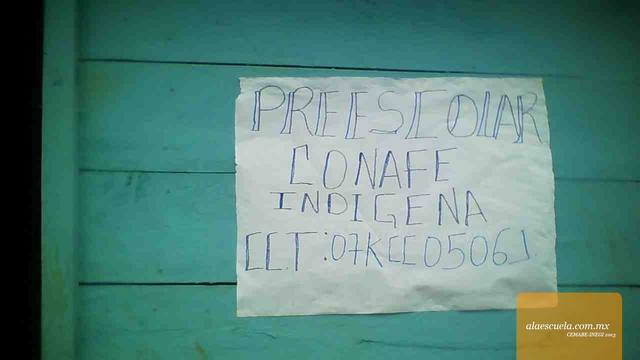 PREESCOLAR
CONAFE
INDIGENA
CCT:07KCC0506J
alaescuela.com.mx
CEMABE-INEGI 2013